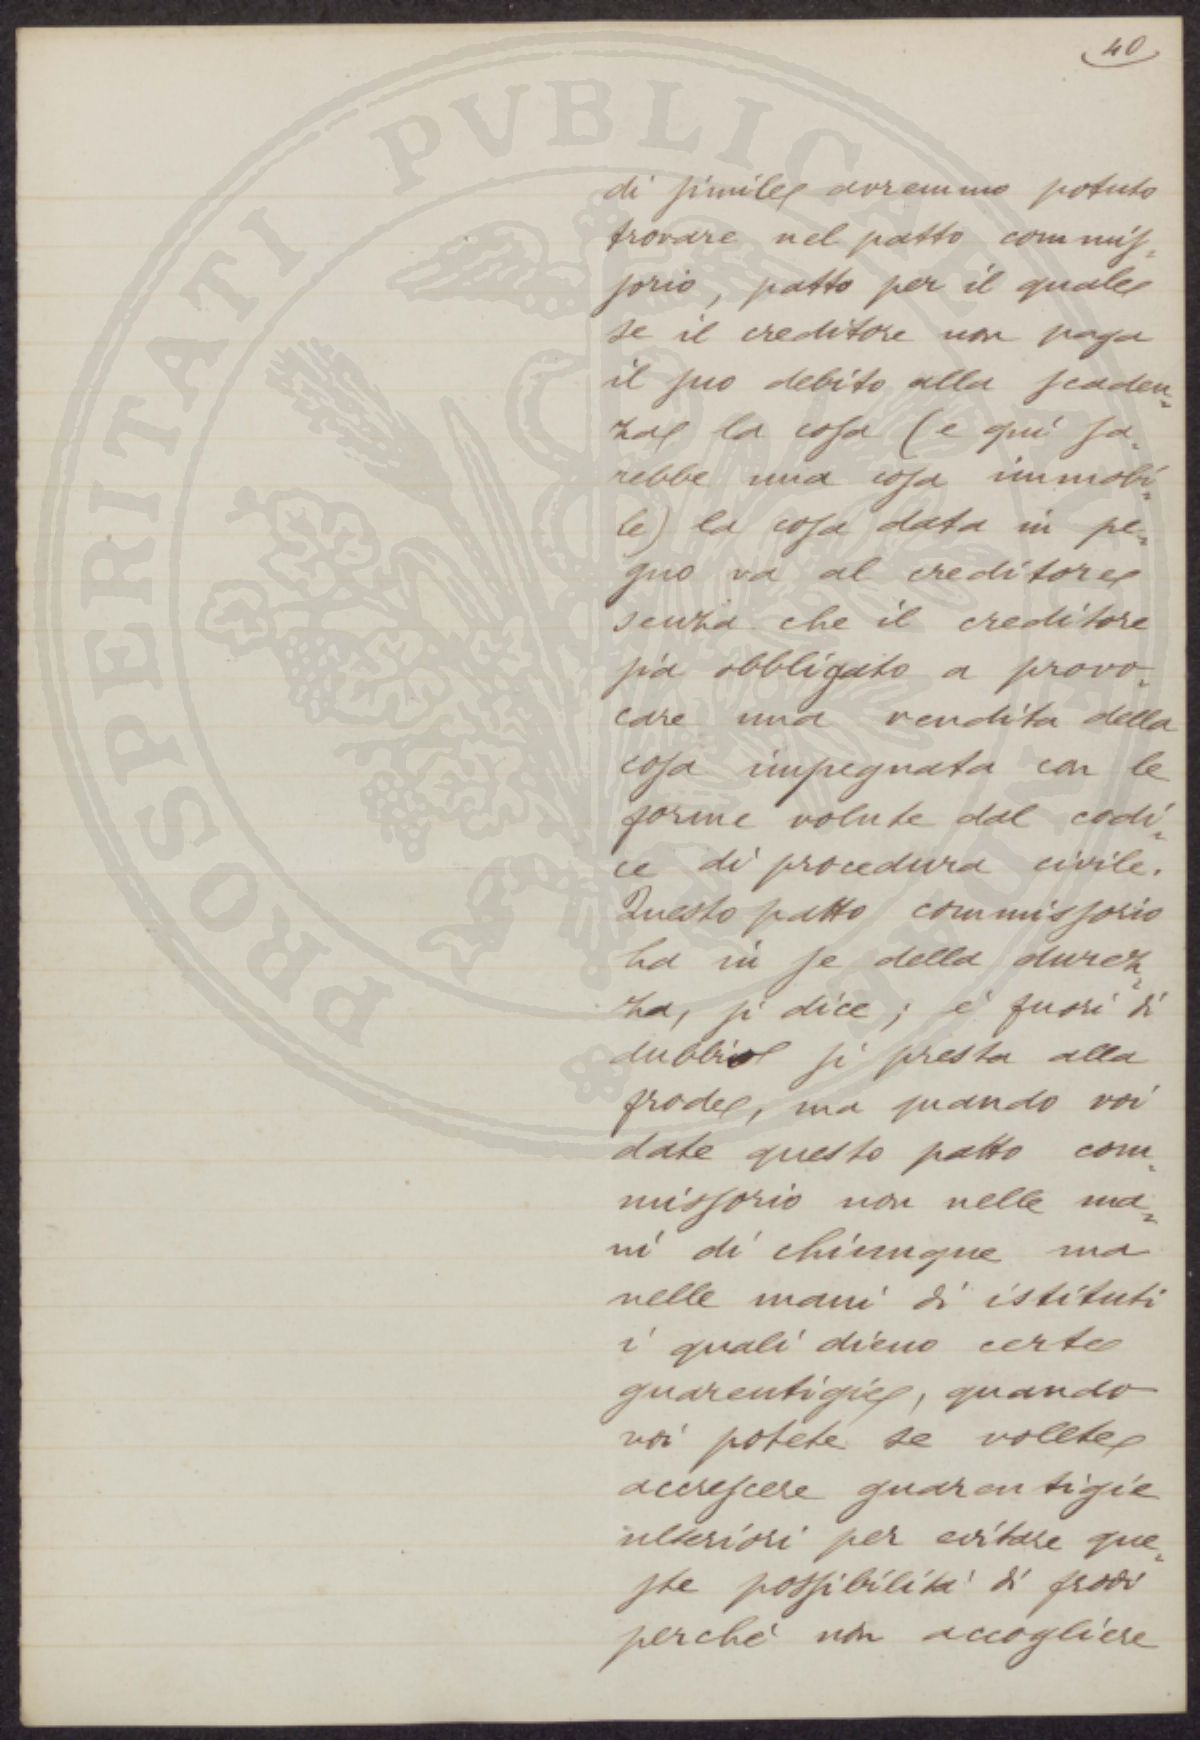 40
PROSPERITATI PVBLICAE AVGENDAE
di simile avremmo potuto
trovare nel patto commis-
sorio, patto per il quale
se il creditore non paga
il suo debito alla scaden-
za la cosa (e qui sa-
rebbe una cosa immobi-
le) la cosa data in pe-
gno va al creditore
senza che il creditore
sia obbligato a provo-
care una vendita della
cosa impegnata con le
forme volute dal codi-
ce di procedura civile.
Questo patto commissorio
ha in se della durez-
za, si dice; è fuori di
dubbio si presta alla
frode, ma quando voi
date questo patto com-
missorio non nelle ma-
ni di chiunque ma
nelle mani di istituti
i quali dieno certe
guarentigie, quando
voi potete se volete
accrescere guarentigie
ulteriori per evitare que-
ste possibilità di frodi
perché non accogliere